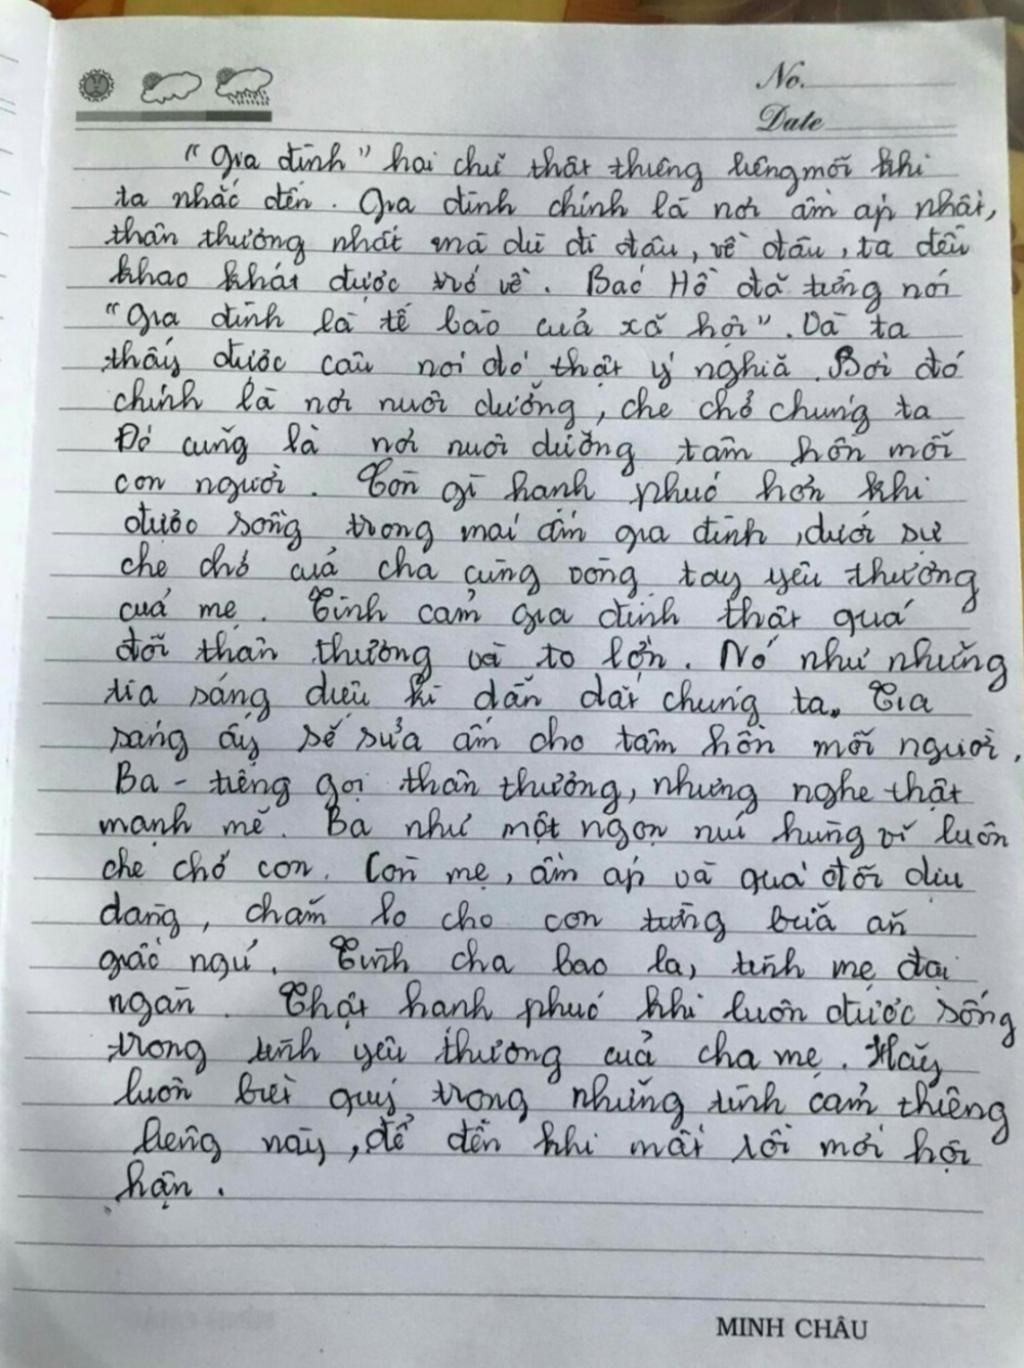 No.
Date
"Gia đình" hai chữ thật thiêng liêng mỗi khi
ta nhắc đến. Gia đình chính là nơi ấm áp nhất,
thân thương nhất mà dù đi đâu, về đâu, ta đều
khao khát được trở về. Bác Hồ đã từng nói
"Gia đình là tế bào của xã hội". Và ta
thấy được câu nói đó thật ý nghĩa. Bởi đó
chính là nơi nuôi dưỡng, che chở chúng ta
Đó cũng là nơi nuôi dưỡng tâm hồn mỗi
con người. Còn gì hạnh phúc hơn khi
được sống trong mái ấm gia đình, dưới sự
che chở của cha cùng vòng tay yêu thương
của mẹ. Tình cảm gia đình thật quá
đỗi thân thương và to lớn. Nó như những
tia sáng diệu kì dẫn dắt chúng ta. Tia
sáng ấy sẽ sửa ấm cho tâm hồn mỗi người.
Ba - tiếng gọi thân thương, nhưng nghe thật
mạnh mẽ. Ba như một ngọn núi hùng vĩ luôn
che chở con. Còn mẹ, ấm áp và quá đỗi dịu
dàng, chăm lo cho con từng bữa ăn
giấc ngủ. Tình cha bao la, tình mẹ đại
ngàn. Thật hạnh phúc khi luôn được sống
trong tình yêu thương của cha mẹ. Hãy
luôn biết quý trọng những tình cảm thiêng
liêng này, để đến khi mất rồi mới hối
hận.
MINH CHÂU